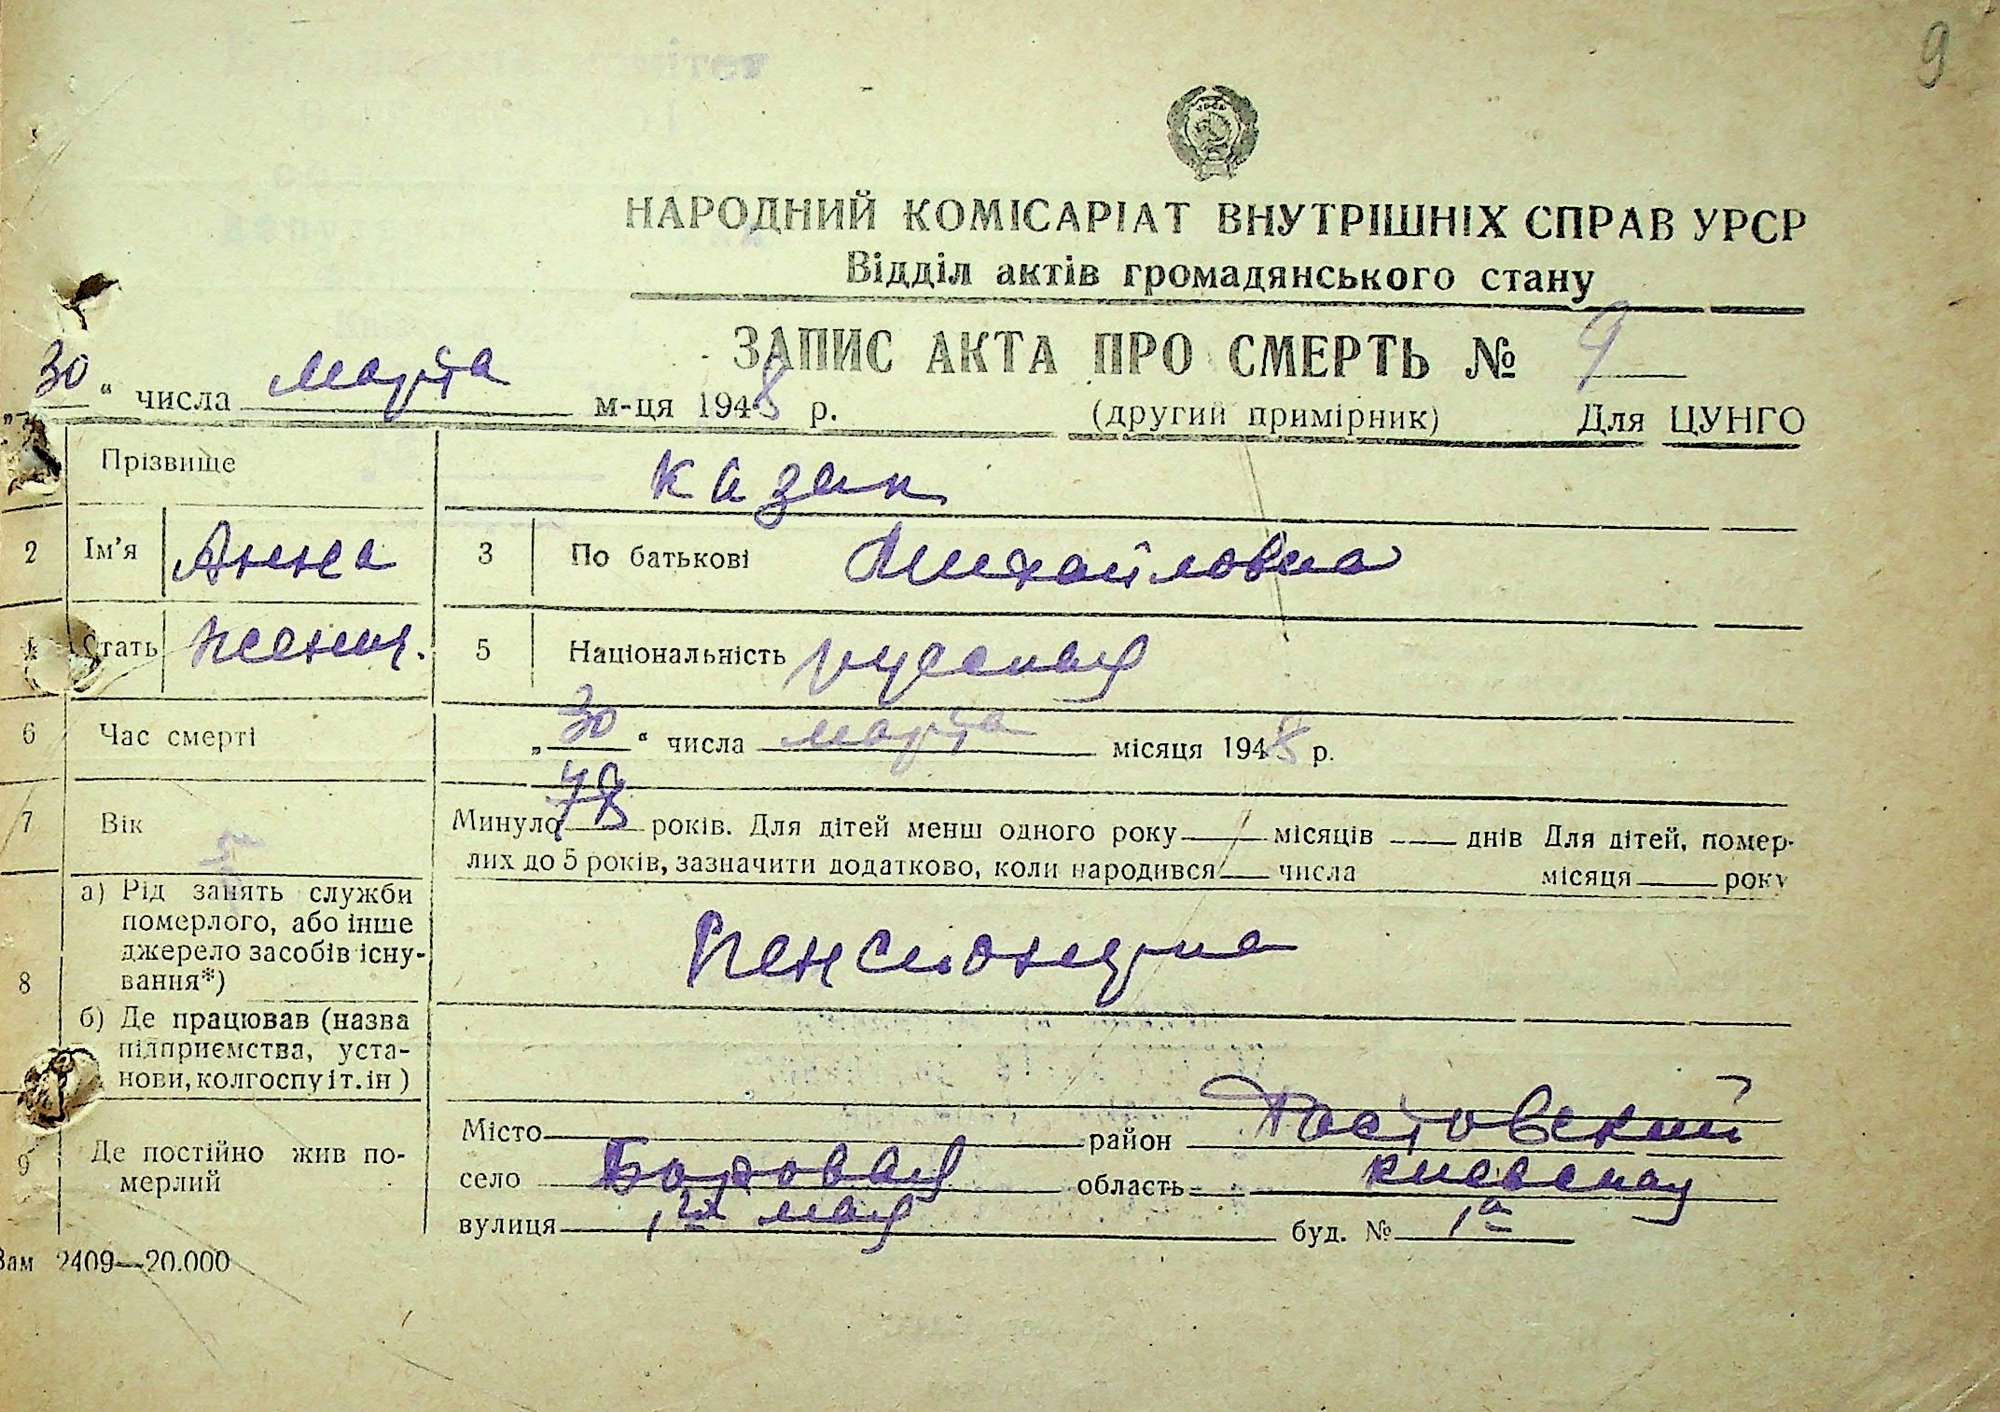 9
НАРОДНИЙ КОМІСАРІАТ ВНУТРІШНІХ СПРАВ УРСР
Відділ актів громадянського стану
ЗАПИС АКТА ПРО СМЕРТЬ № 9
„30“ числа марта м-ця 1948 р. (другий примірник) Для ЦУНГО
Прізвище казак
2 Ім'я Анна 3 По батькові Михайловна
4 Стать женск. 5 Національність русская
6 Час смерті „30“ числа марта місяця 1948 р.
7 Вік Минуло 78 років. Для дітей менш одного року місяців днів Для дітей, помер-
лих до 5 років, зазначити додатково, коли народився числа місяця року
8 а) Рід занять служби
померлого, або інше
джерело засобів існу-
вання*) Пенсионерка
б) Де працював (назва
підприємства, уста-
нови, колгоспу і т. ін)
9 Де постійно жив по-
мерлий
Місто район Фастовский
село Боровая область киевская
вулиця 1го мая буд. № 1а
Зам 2409—20.000